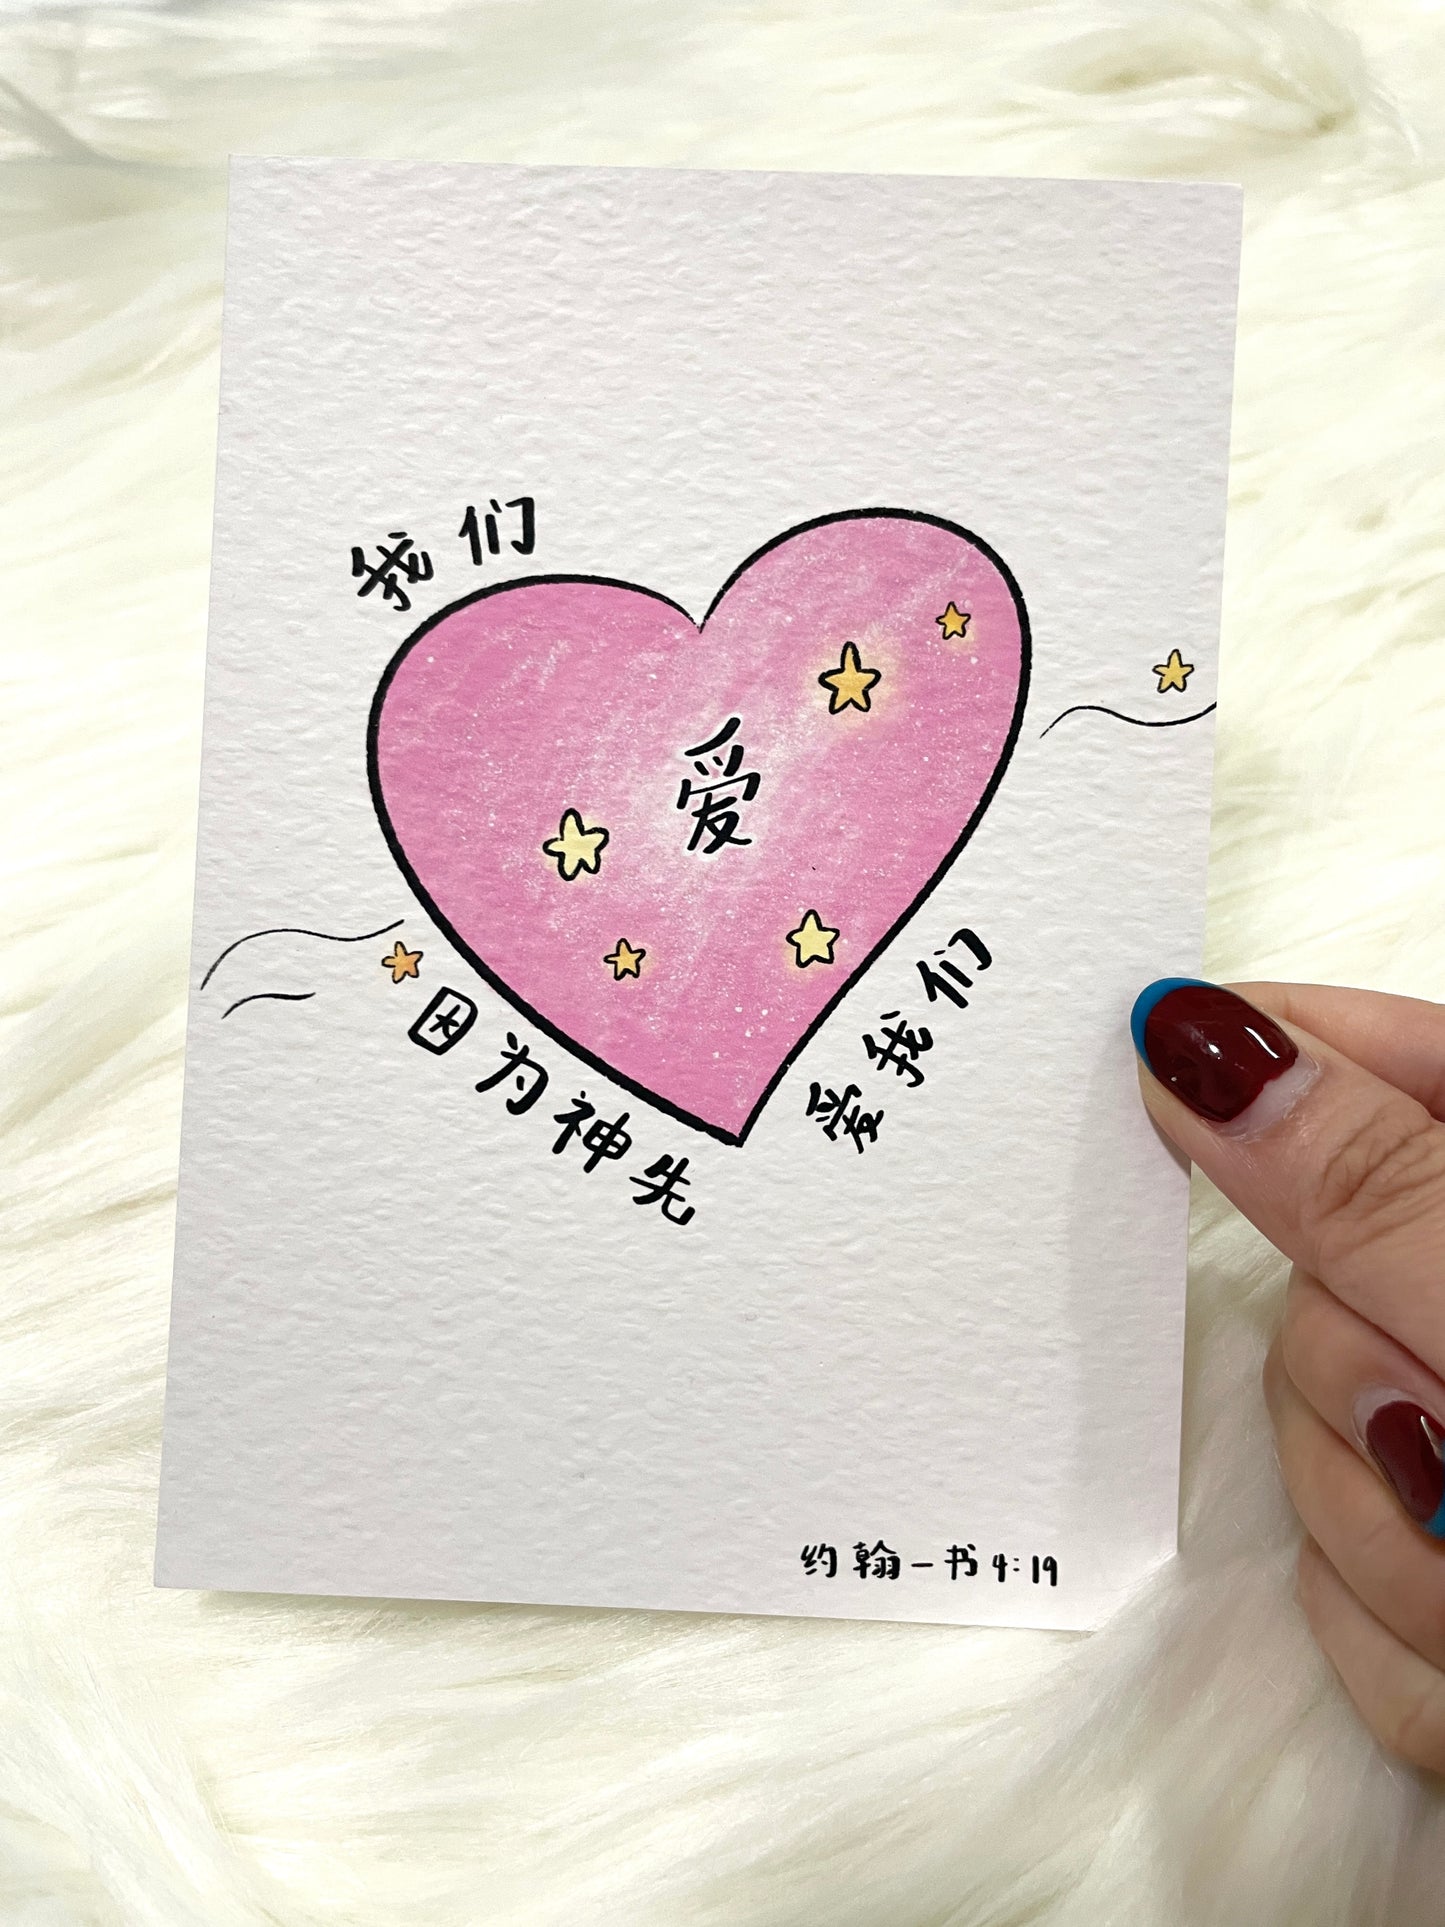 我们
爱
因为神先
爱我们
约翰一书 4:19